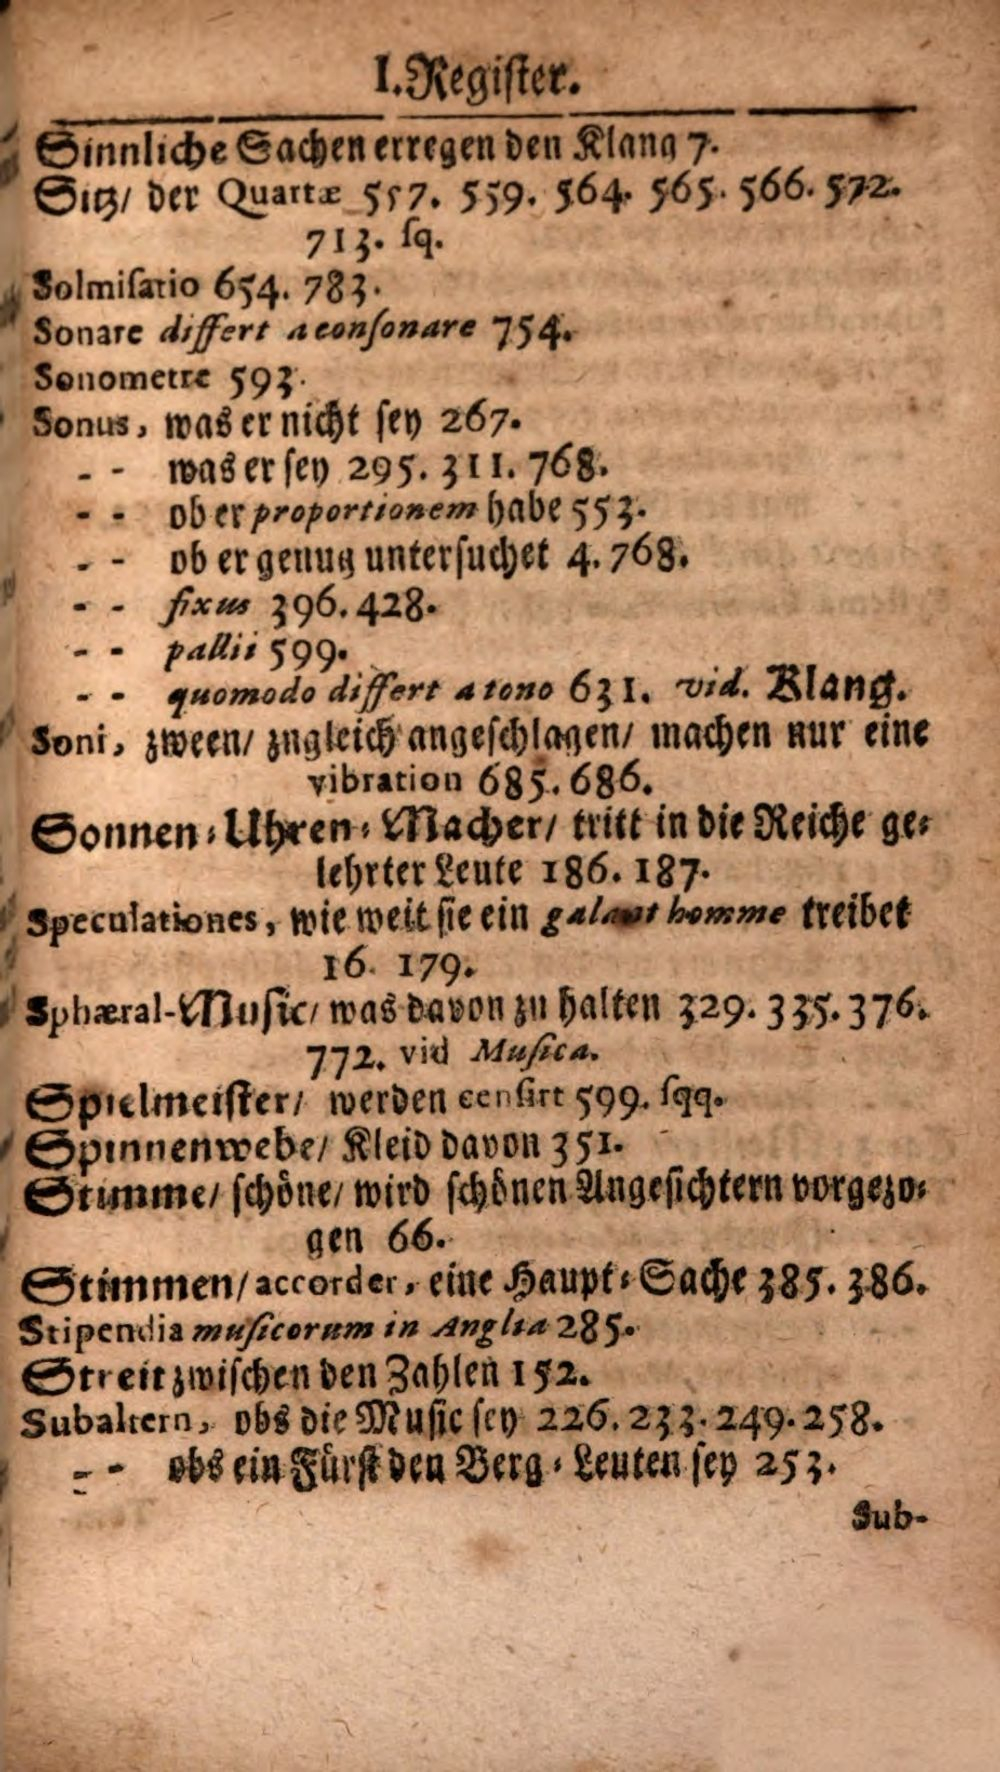 I. Register.
Sinnliche Sachen erregen den Klang 7.
Sitz/ der Quartæ 557. 559. 564. 565. 566. 572.
713. ſq.
Solmiſatio 654. 783.
Sonare differt a conſonare 754.
Sonometre 593.
Sonus, was er nicht ſey 267.
- - was er ſey 295. 311. 768.
- - ob er proportionem habe 553.
- - ob er genug unterſuchet 4. 768.
- - fixus 396. 428.
- - pallii 599.
- - quomodo differt a tono 631. vid. Klang.
Soni, zween/ zugleich angeſchlagen/ machen nur eine
vibration 685. 686.
Sonnen⸗Uhren⸗Macher/ tritt in die Reiche ge⸗
lehrter Leute 186. 187.
Speculationes, wie weit ſie ein galant homme treibet
16. 179.
Sphæral-Muſic/ was davon zu halten 329. 335. 376.
772. vid Muſica.
Spielmeiſter/ werden cenſirt 599. ſqq.
Spinnenwebe/ Kleid davon 351.
Stimme/ ſchöne/ wird ſchönen Angeſichtern vorgezo⸗
gen 66.
Stimmen/ accorder, eine Haupt⸗Sache 385. 386.
Stipendia muſicorum in Anglia 285.
Streit zwiſchen den Zahlen 152.
Subaltern, obs die Muſic ſey 226. 233. 249. 258.
- - obs ein Fürſt den Berg⸗Leuten ſey 253.
Sub-